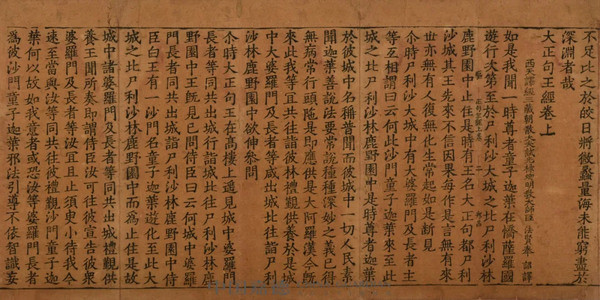 不足比之於皎日將微蠡量海未能窮盡於
深淵者哉
大正句王經卷上
如是我聞一時尊者童子迦葉在憍薩羅國
遊行次第至於尸利沙大城之北尸利沙林
鹿野園中止住是時有王名大正句都尸利
沙城其王先來不信因果每作是言無有來
世亦無有人復無化生常起如是斷見
尒時尸利沙大城中有大婆羅門及長者主
等互相謂曰云何此沙門童子迦葉來至此
城之北尸利沙林鹿野園中是時尊者迦葉
於彼城中名稱普聞而彼城中一切人民素
聞迦葉善說法要常說種種深妙之義已得
無病常行頭陁是即應供是大阿羅漢今既
來此我等宜共往詣彼林禮覲供養於是城
中大婆羅門及長者等咸出城北往詣尸利
沙林鹿野園中欲伸參問
尒時大正句王在高樓上遙見城中婆羅門
長者等同共出城行詣城北往尸利沙林鹿
野園中王既見已問侍臣曰云何城中婆羅
門長者同共出城詣尸利沙林鹿野園中侍
臣白王有一沙門名童子迦葉遊化至此大
城之北尸利沙林鹿野園中而為止住是故
城中諸婆羅門及長者等同共出城禮覲供
養王聞所奏即謂侍臣汝可往彼宣告彼衆
婆羅門及長者等汝宜且止須臾小待我今
速至當與汝等同共往彼禮覲沙門童子迦
葉何以故如我意者或恐汝等婆羅門長者
為彼沙門童子迦葉邪法引導不依智識妄